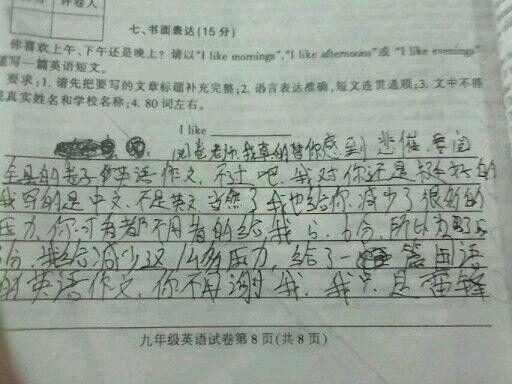 评卷人
七、书面表达(15分)
你喜欢上午、下午还是晚上?请以"I like mornings","I like afternoons"或"I like evenings"
题写一篇英语短文。
要求:1. 请先把要写的文章标题补充完整;2. 语言表达准确,短文连贯通顺;3. 文中不得
现真实姓名和学校名称;4. 80词左右。
I like
阅卷老师,我真的替你感到悲催,要阅
全县的卷子 英语作文,不过吧,我对你还是 的
我写的是中文,不是英文,当然了我也给你减少了很多的
压力,你可有都不用看的给我5、6分,所以为了
给,我给减少这么多压力,给了一 篇国语
的英语作文,你不用谢我,我只是雷锋
九年级英语试卷第8页(共8页)